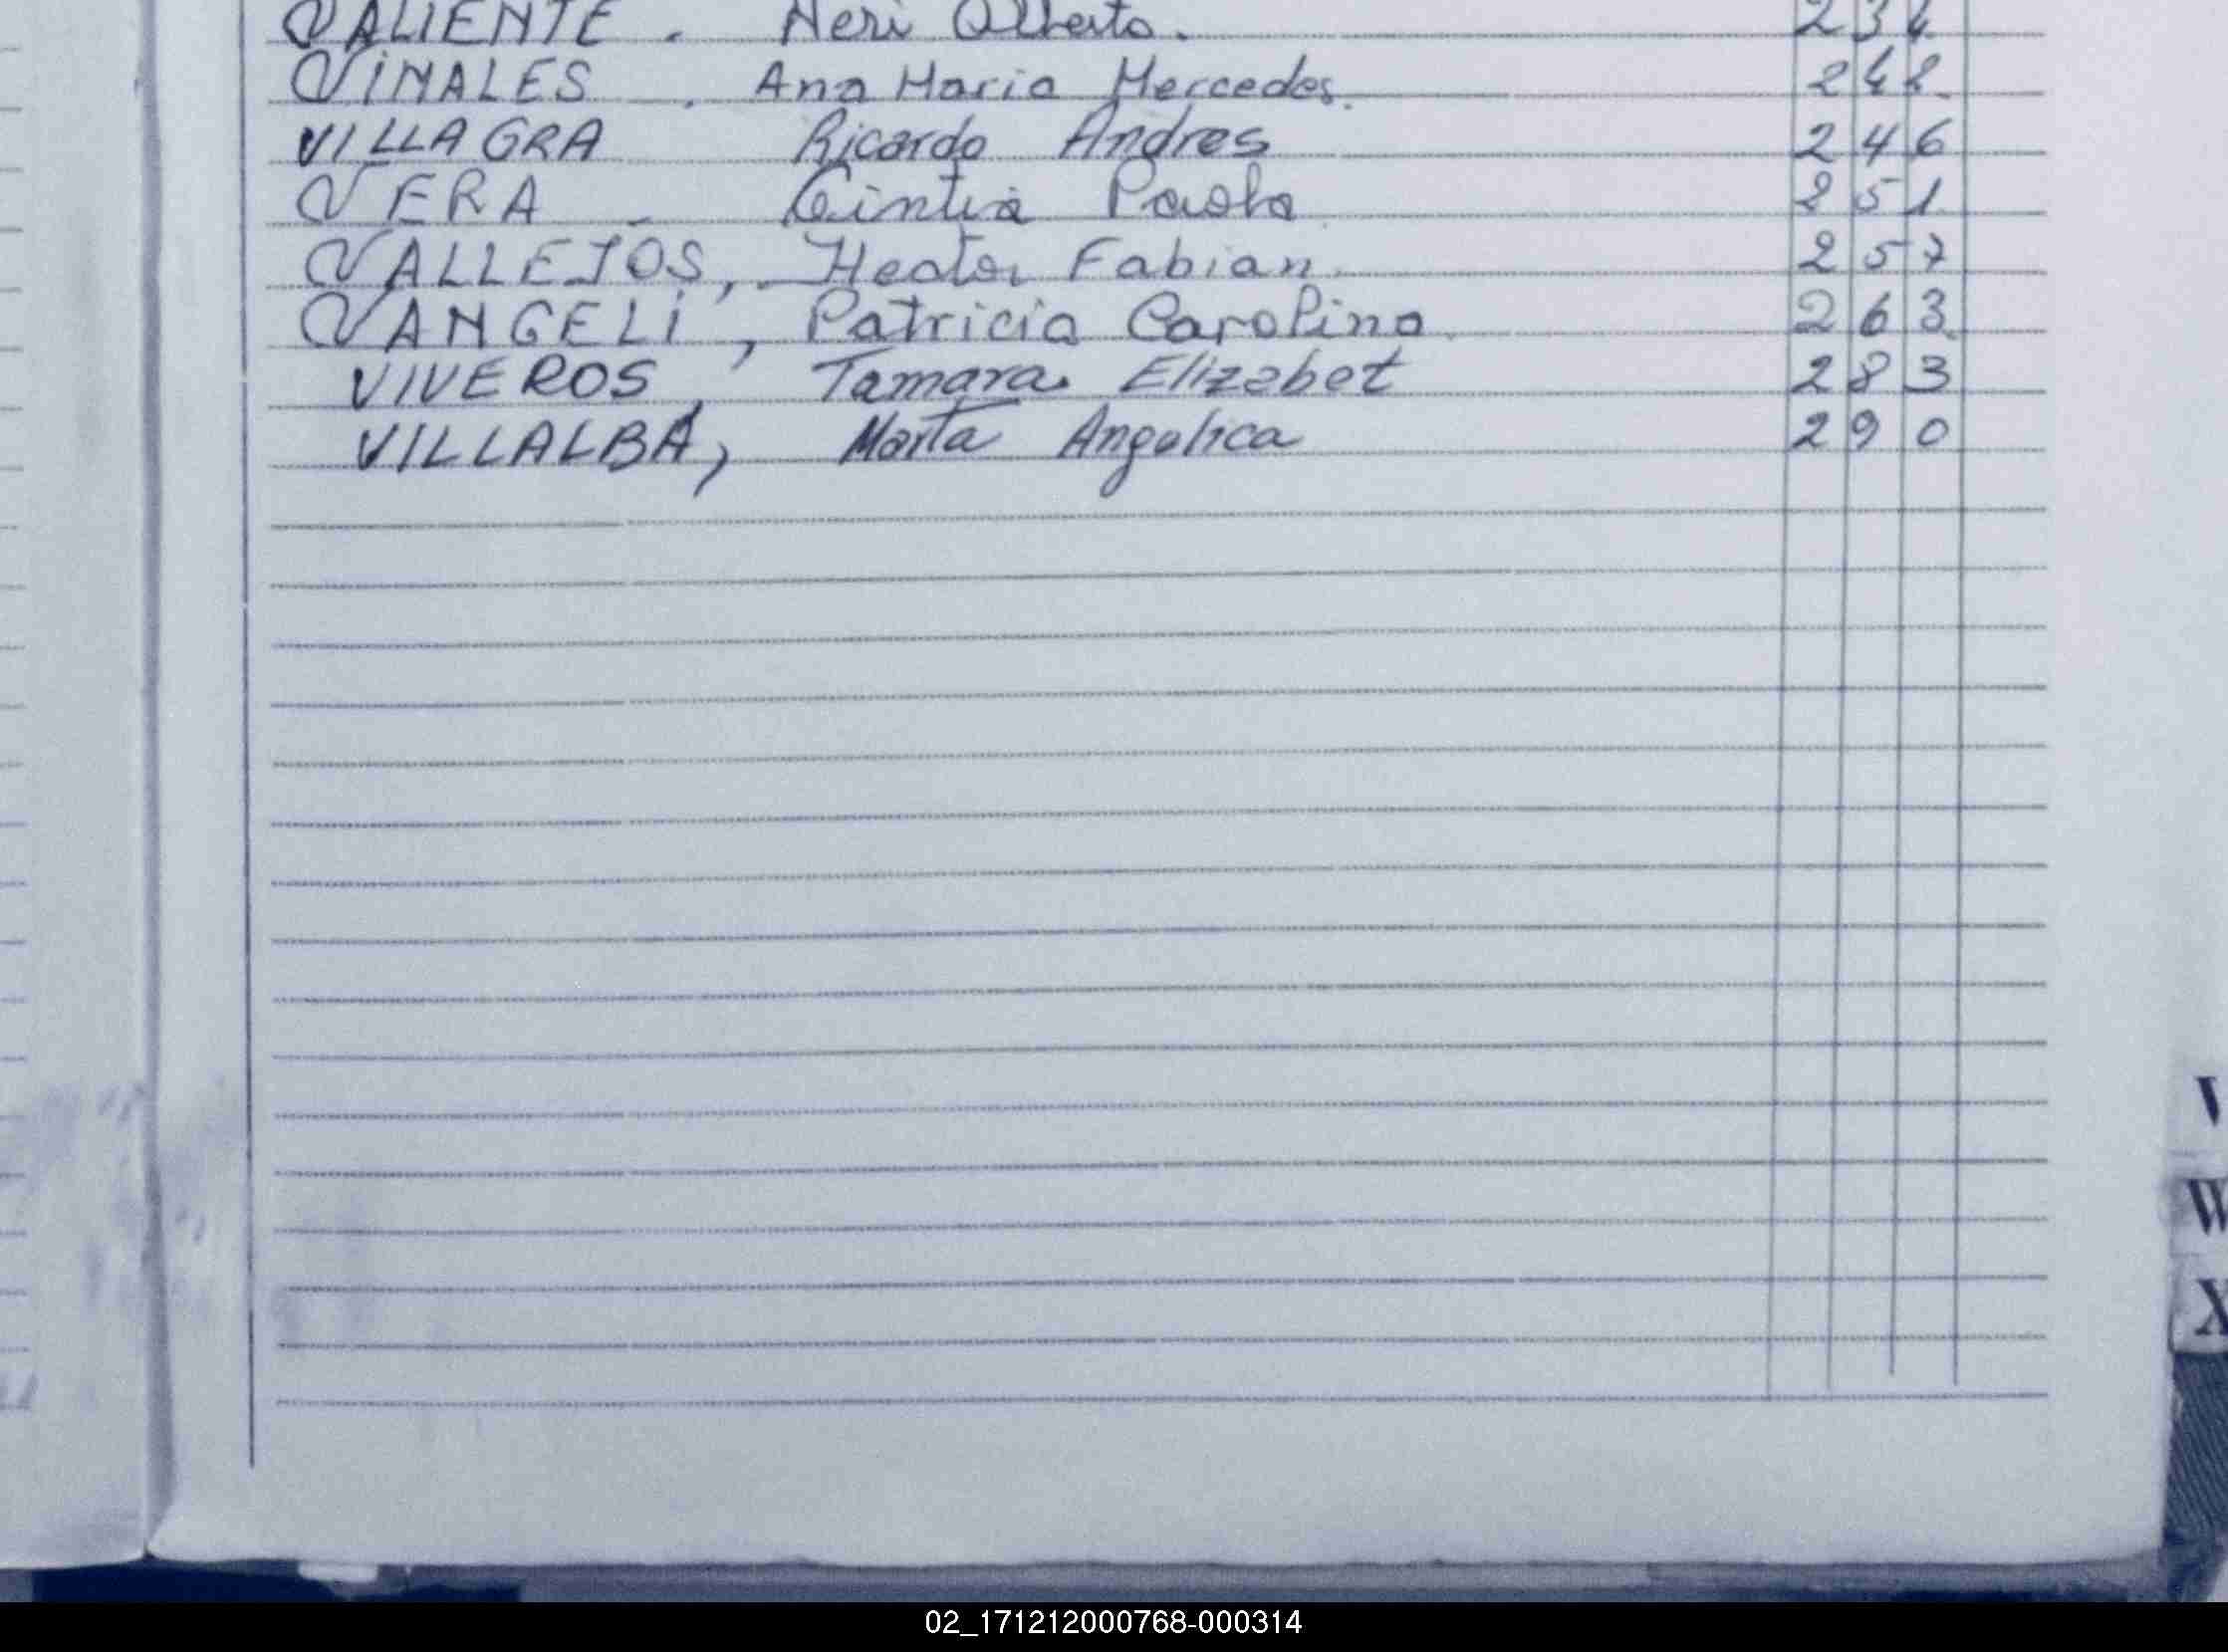 VALIENTE. Neri Alberto. 234
VIÑALES. Ana Maria Mercedes. 242
VILLAGRA Ricardo Andres 246
VERA - Cintia Paola 251
VALLEJOS, Hector Fabian. 257
VANGELI, Patricia Carolina 263
VIVEROS, Tamara Elizabet 283
VILLALBA, Marta Angelica 290
V
W
X
02_171212000768-000314